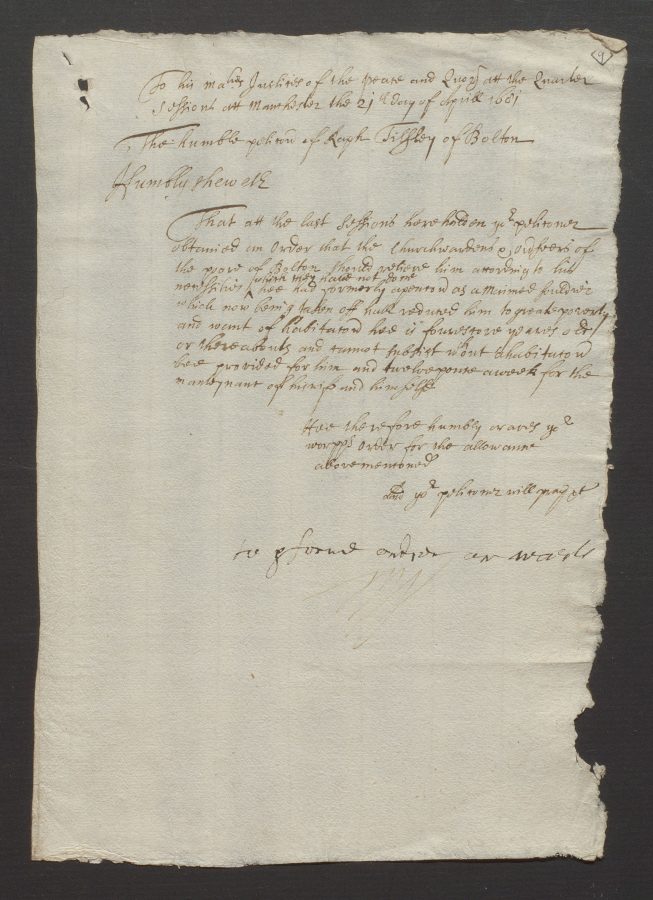 9
To his maties Justices of the peace and Quorū att the Quarter
Sessions att Manchester the 21th day of Aprill 1681
The humble peticon of Raph Tissley of Bolton
Humbly sheweth
That att the last Sessions here holden yor peticoner
obtained an Order that the Churchwardens & Ov'seers of
the poore of Bolton should releive him according to his
necessities which they have not done
hee had formerly a pencon as a Maimed souldier
which now being taken off hath reduced him to greate poverty
and want of habitacon hee is fourescore yeares old
or thereabouts and cannot subsist wthout a habitacon
bee provided for him and twelvepence a weeke for the
maintenance of his wife and himselfe
Hee therefore humbly craves yor
worpps Order for the allowance
abovementioned
And yor peticoner will pray &c
to p'forme order